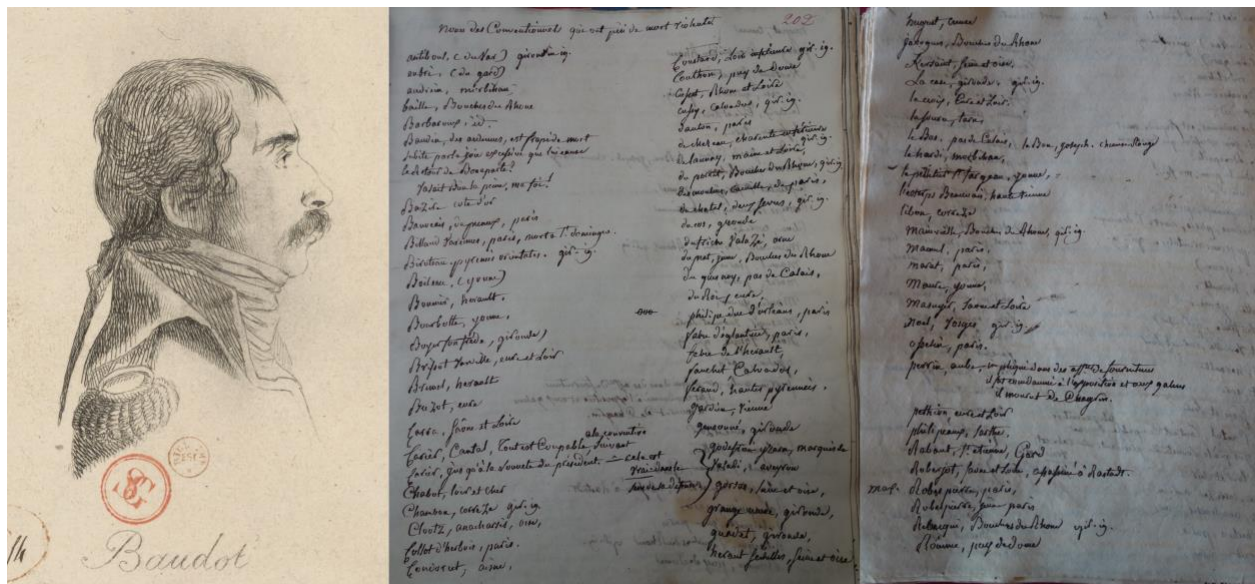 Baudot
202
Noms des Conventionnels qui ont péri de mort violente
antiboul, (du Var) girondin ig.
aubri, (du gard)
audrein, morbihan
baille, Bouches du Rhone
Barbaroux, id.
Baudin, des ardennes, est frappé de mort
subite par la joie excessive que lui cause
le retour de Bonaparte!
Bazire cote d'or
Beauvais, de preaux, paris
Billaud Varennes, paris, mort a St domingue.
Biroteau, pyrenees orientales. gir. ig.
Boileau, (yonne)
Bonnier, herault.
Bourbotte, yonne,
Boyer fonfrede, gironde)
Brissot Warville, eure et Loir
Brunel, herault
Buzot, eure
Carra, Saone et Loire
Carier, Cantal, tout est Coupable, suivant
Carier, jusqu'à la sonnette du président.
Chabot, loir et cher
Chambon, correze gir. ig.
Clootz, anacharsis, oise,
Collot d'herbois, paris.
Condorcet, aisne,
Coustard, Loire inférieure. gir. ig.
Couthon, puy de Dome
Cusset, Rhone et Loire
Cussy, Calvados, gir. ig.
danton, paris
dechezeau, charente inférieure gir. ig.
delaunay, maine et Loire,
de perret, Bouches du Rhone, gir. ig.
desmoulins, Camille, de paris,
duchatel, deux sevres, gir. ig.
ducos, gironde
dufriche Valazé, orne
duprat, jeune, Bouches du Rhone
du quesnoy, pas de Calais,
du Roi, eure,
philippe, duc d'orléans, paris
fabre d'eglantine, paris,
fabre de l'herault,
fauchet Calvados,
feraud, hautes pyrennees.
gardien, Vienne
gensonné, gironde
godefroi yzarn, marquis de
Valadi, aveyron
gorsas, seine et oise,
grange neuve, gironde,
guadet, gironde,
herault sechelles, seine et oise
huguet, creuse
javoques, Bouches du Rhone
Kersaint, seine et oise,
La caze, gironde, gir. ig.
la croix, Eure et Loir.
lasource, tarn,
le Bas, pas de Calais, le Bon, joseph.
le hardi, morbihan,
le pelletier St fargeau, yonne,
lesterps Beauvais, haute vienne
lidon, correze
mainvielle, Bouches du Rhone, gir. ig.
manuel, paris.
marat, paris,
maure, yonne,
masuyer, saone et Loire
Noel, Vosges, gir. ig.
osselin, paris.
perrin, aube, impliqué dans des affres de fournitures
il fut condamné à l'exposition et aux galeres
il mourut de Chagrin.
pethion, eure et Loir
philipeaux, sarthe,
Rabaut, St etienne, Gard
Roberjot, saone et Loire, assassiné à Rastadt.
Robespierre, paris,
Robespierre, jeune paris
Rebecqui, Bouches du Rhone gir. ig.
Romme, puy de dome